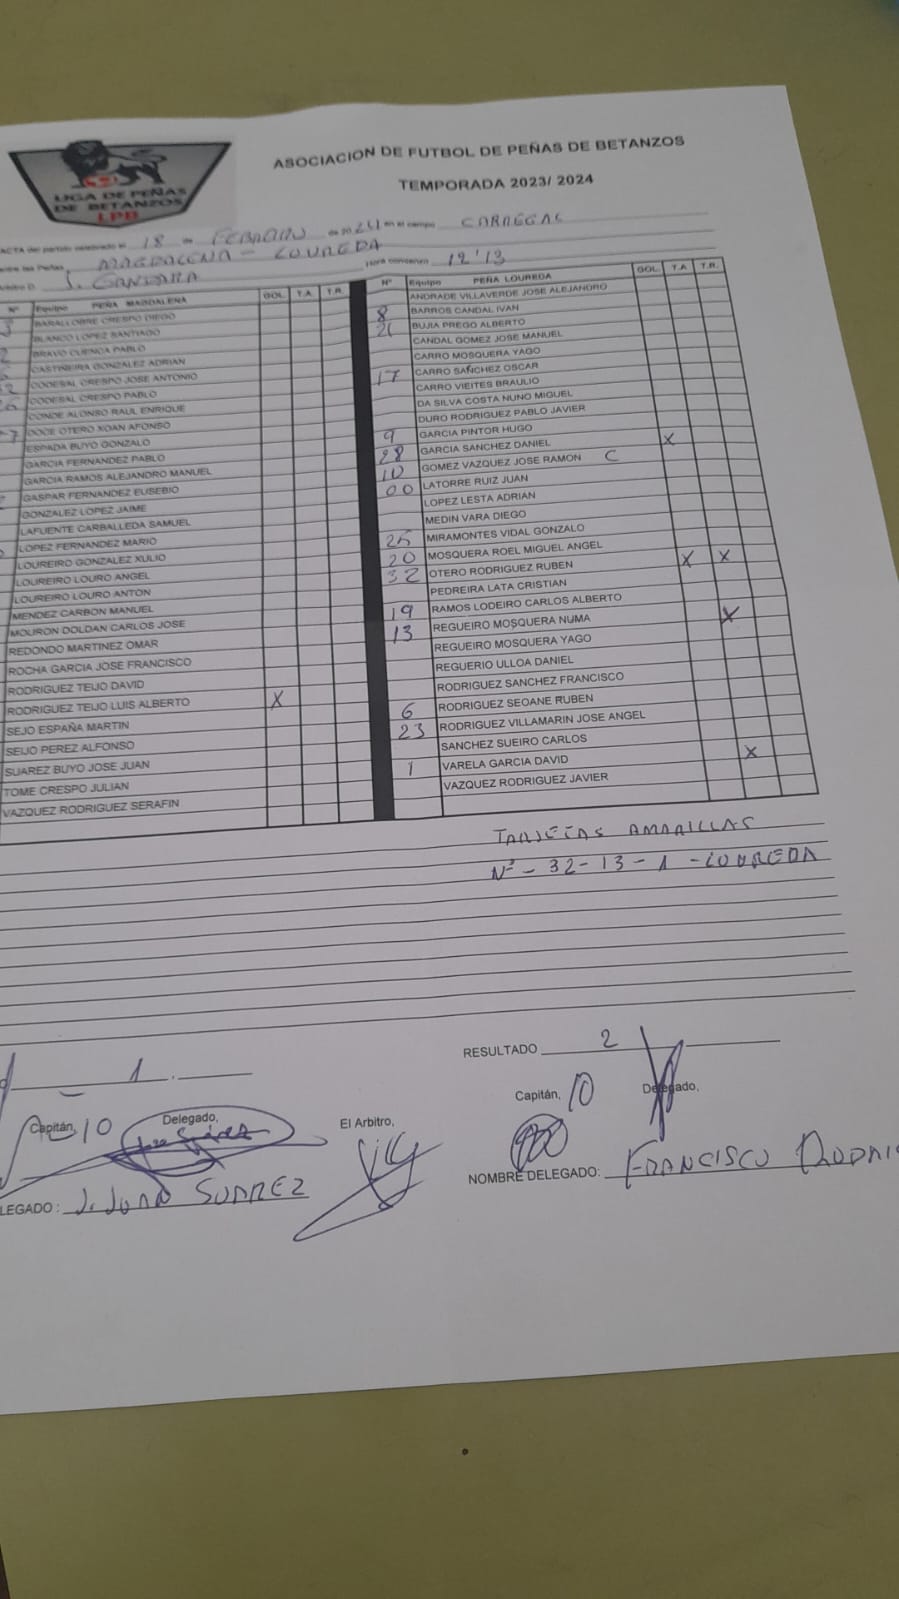 LIGA DE PEÑAS
DE BETANZOS
LPB
ASOCIACION DE FUTBOL DE PEÑAS DE BETANZOS
TEMPORADA 2023/ 2024
ACTA del partido celebrado el 18 de FEBRARO de 2024 en el campo CARREGAS
entre las Peñas MAGDALENA - LOUREDA Hora comienzo 12'13
Arbitro D. J. GANDARA
Nº Equipo PEÑA MAGDALENA GOL T.A T.R.
BARALLOBRE CRESPO DIEGO
BLANCO LOPEZ SANTIAGO
BRAVO CUENCA PABLO
CASTIÑEIRA GONZALEZ ADRIAN
CODESAL CRESPO JOSE ANTONIO
CODESAL CRESPO PABLO
CONDE ALONSO RAUL ENRIQUE
DOCE OTERO XOAN AFONSO
ESPADA BUYO GONZALO
GARCIA FERNANDEZ PABLO
GARCIA RAMOS ALEJANDRO MANUEL
GASPAR FERNANDEZ EUSEBIO
GONZALEZ LOPEZ JAIME
LAFUENTE CARBALLEDA SAMUEL
LOPEZ FERNANDEZ MARIO
LOUREIRO GONZALEZ XULIO
LOUREIRO LOURO ANGEL
LOUREIRO LOURO ANTON
MENDEZ CARBON MANUEL
MOURON DOLDAN CARLOS JOSE
REDONDO MARTINEZ OMAR
ROCHA GARCIA JOSE FRANCISCO
RODRIGUEZ TEIJO DAVID
RODRIGUEZ TEIJO LUIS ALBERTO X
SEJO ESPAÑA MARTIN
SEIJO PEREZ ALFONSO
SUAREZ BUYO JOSE JUAN
TOME CRESPO JULIAN
VAZQUEZ RODRIGUEZ SERAFIN
Nº Equipo PEÑA LOUREDA GOL T.A T.R.
ANDRADE VILLAVERDE JOSE ALEJANDRO
8 BARROS CANDAL IVAN
21 BUJIA PREGO ALBERTO
CANDAL GOMEZ JOSE MANUEL
CARRO MOSQUERA YAGO
17 CARRO SANCHEZ OSCAR
CARRO VIEITES BRAULIO
DA SILVA COSTA NUNO MIGUEL
DURO RODRIGUEZ PABLO JAVIER
9 GARCIA PINTOR HUGO X
28 GARCIA SANCHEZ DANIEL
10 GOMEZ VAZQUEZ JOSE RAMON C
00 LATORRE RUIZ JUAN
LOPEZ LESTA ADRIAN
MEDIN VARA DIEGO
25 MIRAMONTES VIDAL GONZALO
20 MOSQUERA ROEL MIGUEL ANGEL
32 OTERO RODRIGUEZ RUBEN X X
PEDREIRA LATA CRISTIAN
19 RAMOS LODEIRO CARLOS ALBERTO
13 REGUEIRO MOSQUERA NUMA X
REGUEIRO MOSQUERA YAGO
REGUERIO ULLOA DANIEL
RODRIGUEZ SANCHEZ FRANCISCO
6 RODRIGUEZ SEOANE RUBEN
23 RODRIGUEZ VILLAMARIN JOSE ANGEL
SANCHEZ SUEIRO CARLOS
1 VARELA GARCIA DAVID X
VAZQUEZ RODRIGUEZ JAVIER
TARJETAS AMARILLAS
Nº - 32 - 13 - 1 - LOUREDA
1
RESULTADO 2
Capitán, 10 Delegado,
El Arbitro,
Capitán, 10 Delegado,
LEGADO : J. JUAN SUAREZ
NOMBRE DELEGADO: FRANCISCO RODRIG